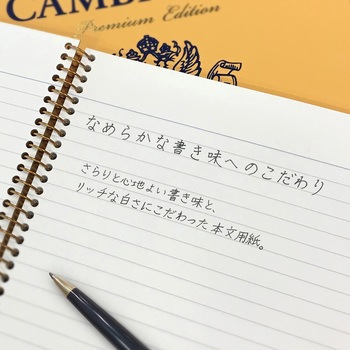 CAMB
Premium Edition
なめらかな書き味へのこだわり
さらりと心地よい書き味と、
リッチな白さにこだわった本文用紙。